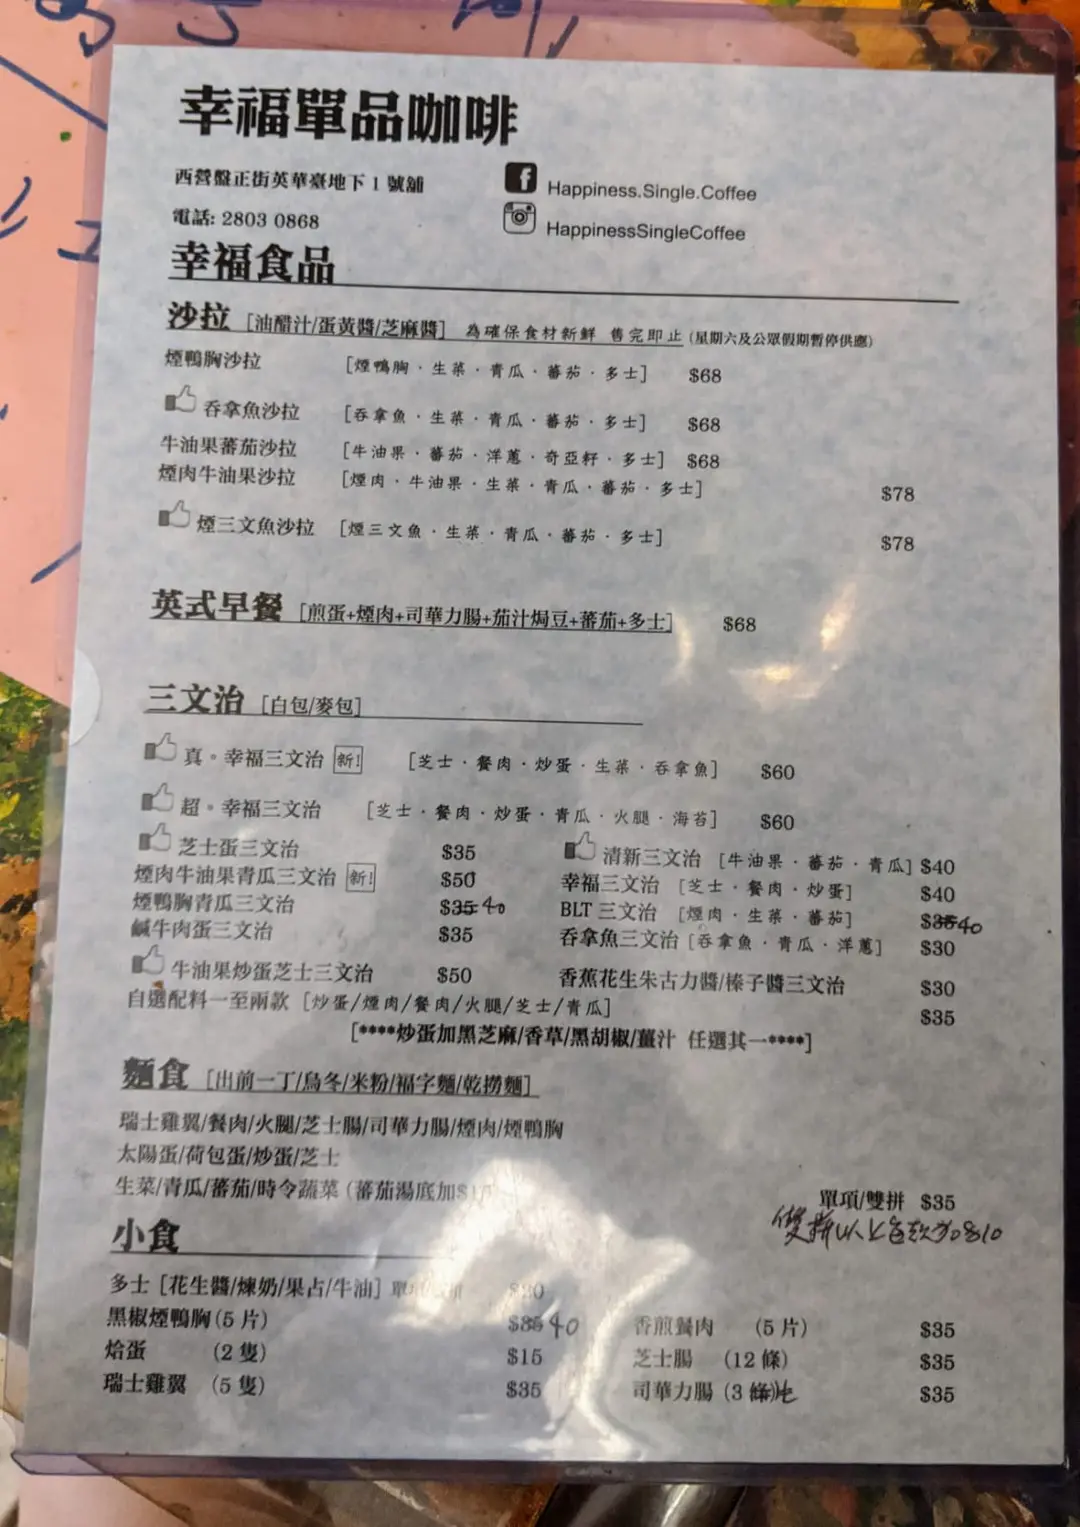 幸福單品咖啡
西營盤正街英華臺地下 1 號舖
Happiness.Single.Coffee
電話: 2803 0868
HappinessSingleCoffee
幸福食品
沙拉 [油醋汁/蛋黃醬/芝麻醬] 為確保食材新鮮 售完即止 (星期六及公眾假期暫停供應)
煙鴨胸沙拉 [煙鴨胸・生菜・青瓜・蕃茄・多士] $68
吞拿魚沙拉 [吞拿魚・生菜・青瓜・蕃茄・多士] $68
牛油果蕃茄沙拉 [牛油果・蕃茄・洋蔥・奇亞籽・多士] $68
煙肉牛油果沙拉 [煙肉・牛油果・生菜・青瓜・蕃茄・多士] $78
煙三文魚沙拉 [煙三文魚・生菜・青瓜・蕃茄・多士] $78
英式早餐 [煎蛋+煙肉+司華力腸+茄汁焗豆+蕃茄+多士] $68
三文治 [白包/麥包]
真。幸福三文治 新! [芝士・餐肉・炒蛋・生菜・吞拿魚] $60
超。幸福三文治 [芝士・餐肉・炒蛋・青瓜・火腿・海苔] $60
芝士蛋三文治 $35 清新三文治 [牛油果・蕃茄・青瓜] $40
煙肉牛油果青瓜三文治 新! $50 幸福三文治 [芝士・餐肉・炒蛋] $40
煙鴨胸青瓜三文治 $35 40 BLT 三文治 [煙肉・生菜・蕃茄] $35 40
鹹牛肉蛋三文治 $35 吞拿魚三文治 [吞拿魚・青瓜・洋蔥] $30
牛油果炒蛋芝士三文治 $50 香蕉花生朱古力醬/榛子醬三文治 $30
自選配料一至兩款 [炒蛋/煙肉/餐肉/火腿/芝士/青瓜] $35
[****炒蛋加黑芝麻/香草/黑胡椒/薑汁 任選其一****]
麵食 [出前一丁/烏冬/米粉/福字麵/乾撈麵]
瑞士雞翼/餐肉/火腿/芝士腸/司華力腸/煙肉/煙鴨胸
太陽蛋/荷包蛋/炒蛋/芝士
生菜/青瓜/蕃茄/時令蔬菜 (蕃茄湯底加$
單項/雙拼 $35
雙拼以上每款加$10
小食
多士 [花生醬/煉奶/果占/牛油] $20
黑椒煙鴨胸(5 片) $35 40 香煎餐肉 (5 片) $35
烚蛋 (2 隻) $15 芝士腸 (12 條) $35
瑞士雞翼 (5 隻) $35 司華力腸 (3 條) $35